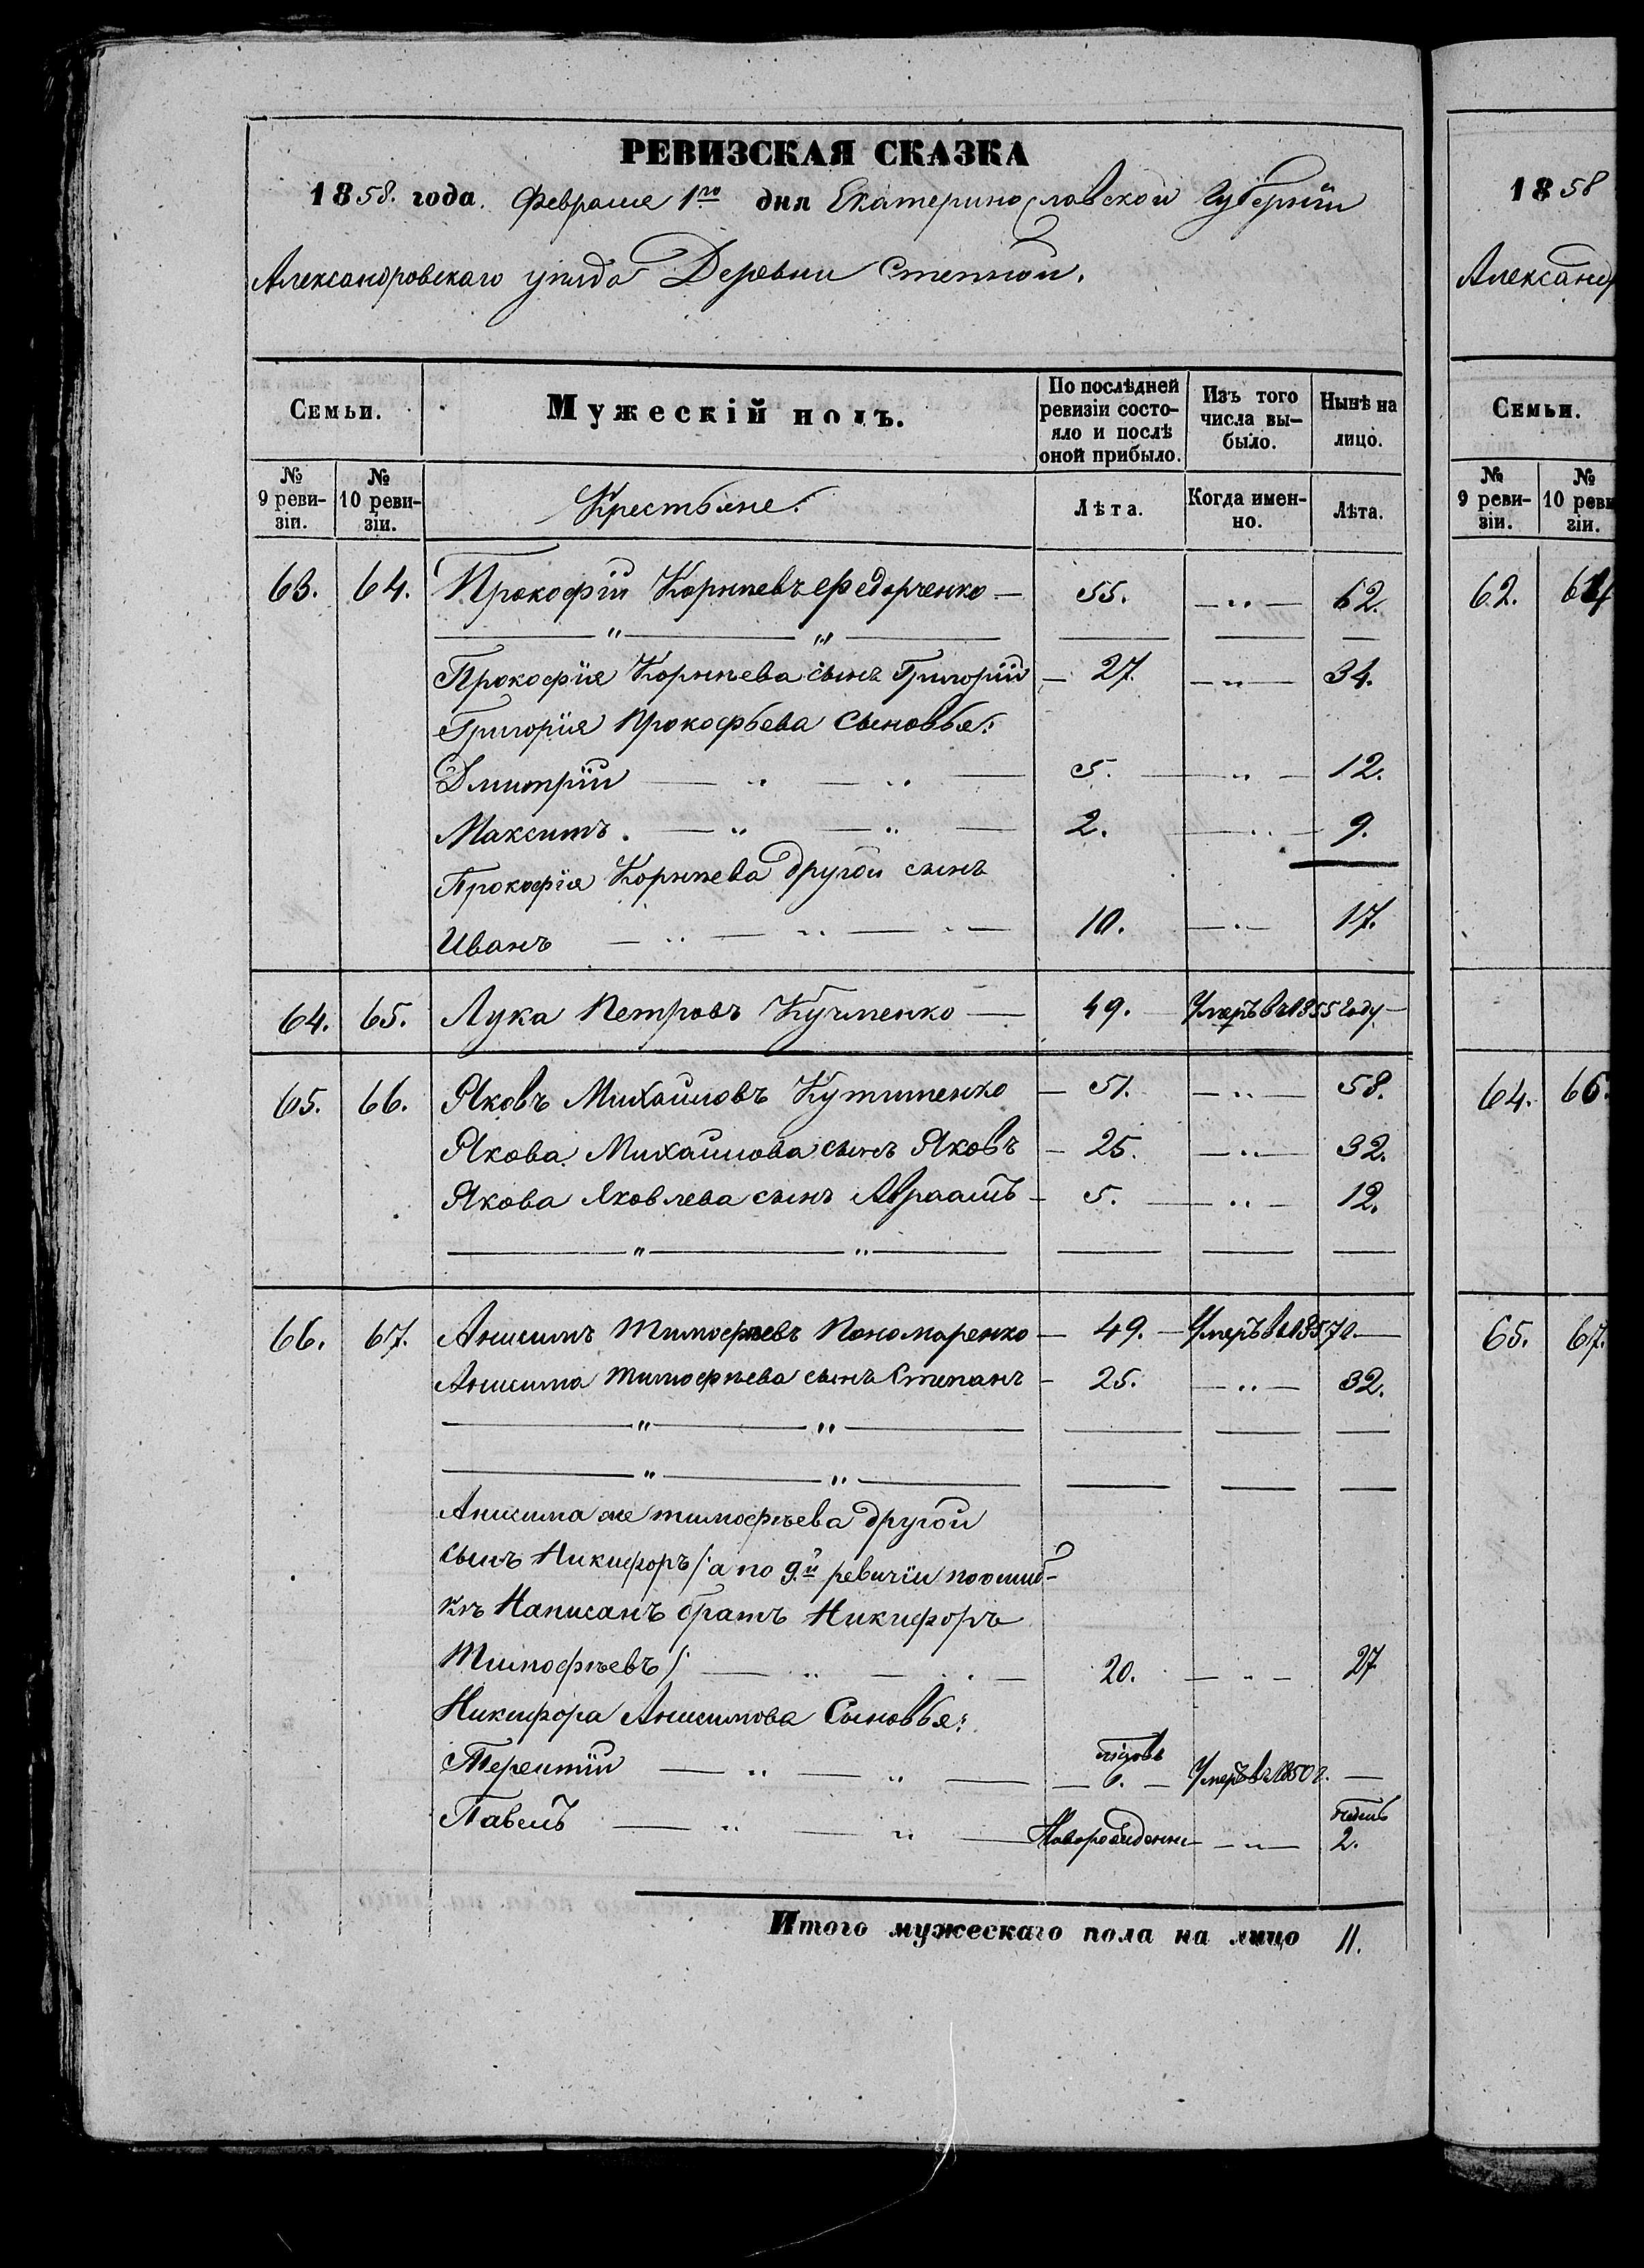 РЕВИЗСКАЯ СКАЗКА
1858. года. Февраля 1го дня Екатеринославской Губернiи
Александровскаго уѣзда Деревни Степной.
Семьи.
Мужескiй полъ.
По послѣдней ревизiи состо-яло и послѣ оной прибыло.
Изъ того числа вы-было.
Нынѣ на лицо.
№ 9 реви-зiи.
№ 10 реви-зiи.
Крестьяне:
Лѣта.
Когда имен-но.
Лѣта.
63. 64. Прокофiй Корнѣевъ Федорченко — 55. — " — 62.
— " — " —
Прокофiя Корнѣева сынъ Григорiй — 27. — " — 34.
Григорiя Прокофьева Сыновья:
Дмитрiй — " — " — 5. — " — 12.
Максимъ. — " — " — 2. — " — 9.
Прокофiя Корнѣева другой сынъ
Иванъ — " — " — " — 10. — " — 17.
64. 65. Лука Петровъ Кучменко — 49. Умеръ въ 1855 году —
65. 66. Яковъ Михайловъ — 51. — " — 58.
Якова Михайлова сынъ Яковъ — 25. — " — 32.
Якова Яковлева сынъ Авраамъ — 5. — " — 12.
— " — " —
66. 67. Анисимъ Тимофѣевъ Пономаренко — 49. — Умеръ въ 1857 г. —
Анисима Тимофѣева сынъ Степанъ — 25. — " — 32.
— " — " —
— " — " —
Анисима же тимофѣева другой
сынъ Никифоръ /: а по 9й ревизiи по ошиб-
кѣ Написанъ братъ Никифоръ
Тимофѣевъ :/ — " — " — 20. — " — 27
Никифора Анисимова Сыновья:
Терентiй — " — " — 6. — Умеръ въ 1850 г. —
Павелъ — " — " — Новорожденны — " — 2.
Итого мужескаго пола на лицо 11.
1858
Александр
Семьи.
№ 9 реви-зiи.
№ 10 реви зiи.
62. 64
64. 66.
65. 67.